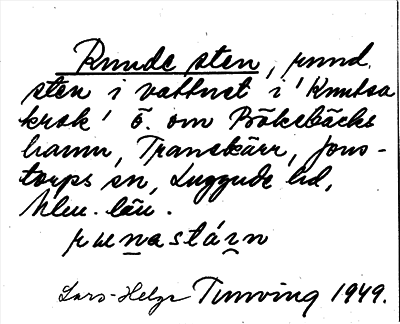 Runde sten, rund
sten i vattnet i 'Knutsa
krok' ö. om Bökebäcks
hamn, Tranekärr, Jons-
torps sn, Luggude hd,
Mlm. län.
runastárn
Lars-Helge Tunving 1949.